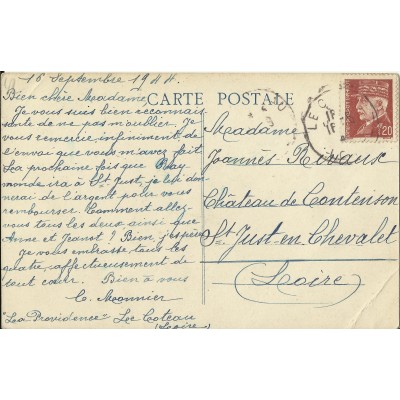 16 Septembre 1944.
Bien chère Madame,
Je vous suis bien reconnais
sante de ne pas m'oublier. Je
vous remercie infiniment de
l'envoi que vous m'avez fait
La prochaine fois que Ray
monde ira à St Just, je lui don
nerai de l'argent pour vous
rembourser. Comment allez-
vous tous les deux ainsi que
Anne et Jeanot? Bien, j'espère
Je vous embrasse tous les
quatre, affectueusement de
tout cœur. Bien à vous
C. Meunier
"La Providence" Le Coteau
(Loire)
CARTE POSTALE
Madame
Joannès Rivaux
Château de Contenson
St Just-en-Chevalet
(Loire)
1F20